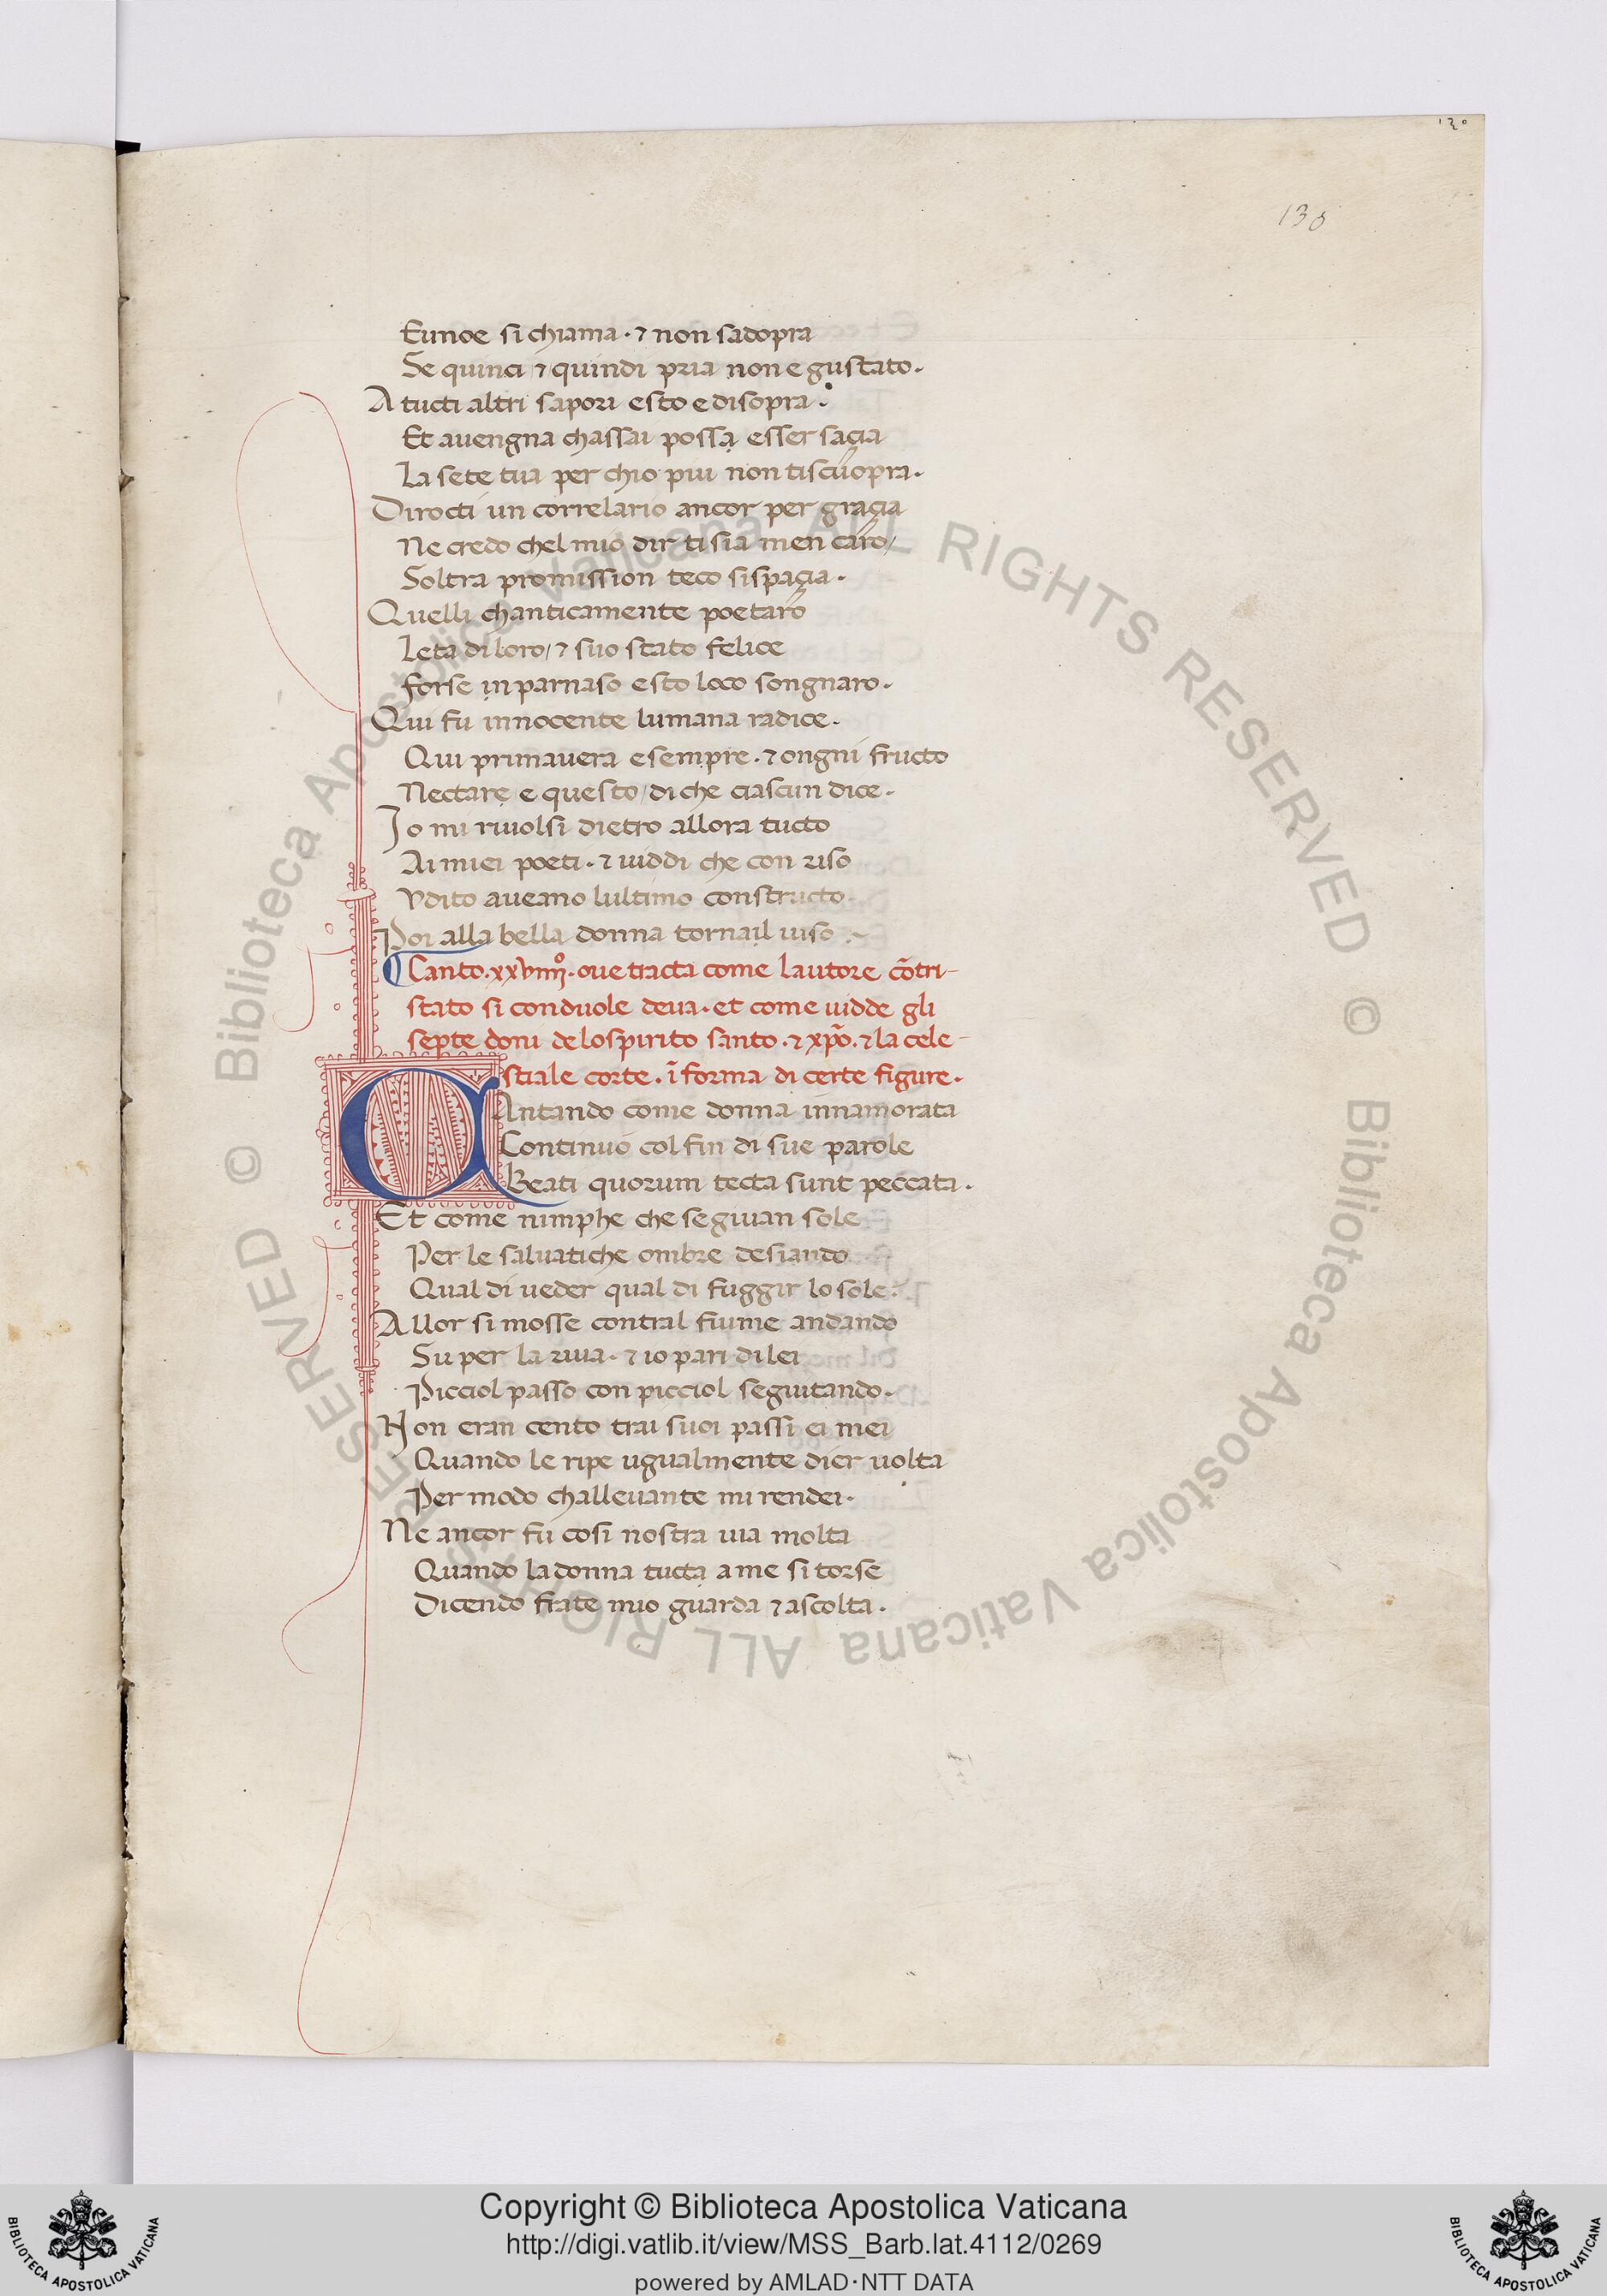 130
130
Eunoe si chiama · ⁊ non sadopra
Se quinci / ⁊ quindi pria non e gustato ·
A tucti altri sapori esto e disopra ·
Et auengna chassai possa esser sacia
La sete tua per chio piu non tiscuopra ·
Dirocti un correlario ancor per gracia
Ne credo chel mio dir ti sia men caro /
Soltra promission teco sispacia ·
Quelli chanticamente poetaro
Leta di loro / ⁊ suo stato felice
forse in parnaso esto loco songnaro ·
Qui fu innocente lumana radice ·
Qui primauera e sempre · ⁊ ongni fructo
Nectare e questo / di che ciascun dice ·
Io mi riuolsi dietro allora tucto
Ai miei poeti · ⁊ uiddi che con riso
Vdito aueano lultimo constructo ·
Poi alla bella donna tornail uiso :~
Canto · xxviiijº · oue tracta come lautore cōtri-
stato si conduole deua · et come uidde gli
septe doni de lo spirito santo · ⁊ xp̄o · ⁊ la cele-
stiale corte · ī forma di certe figure ·
CAntando come donna innamorata
Continuo col fin di sue parole
Beati quorum tecta sunt peccata ·
Et come nimphe che segiuan sole
Per le saluatiche ombre desiando
Qual di ueder qual di fuggir lo sole ·
Allor si mosse contral fiume andando
Su per la riua · ⁊ io pari di lei
Picciol passo con picciol seguitando ·
Non eran cento trai suoi passi ei mei
Quando le ripe ugualmente dier uolta
Per modo challeuante mi rendei ·
Ne ancor fu cosi nostra uia molta
Quando la donna tucta a me si torse
Dicendo frate mio guarda ⁊ ascolta ·
© Biblioteca Apostolica Vaticana ALL RIGHTS RESERVED
© Biblioteca Apostolica Vaticana ALL RIGHTS RESERVED
Copyright © Biblioteca Apostolica Vaticana
http://digi.vatlib.it/view/MSS_Barb.lat.4112/0269
powered by AMLAD·NTT DATA
BIBLIOTECA APOSTOLICA VATICANA
BIBLIOTECA APOSTOLICA VATICANA